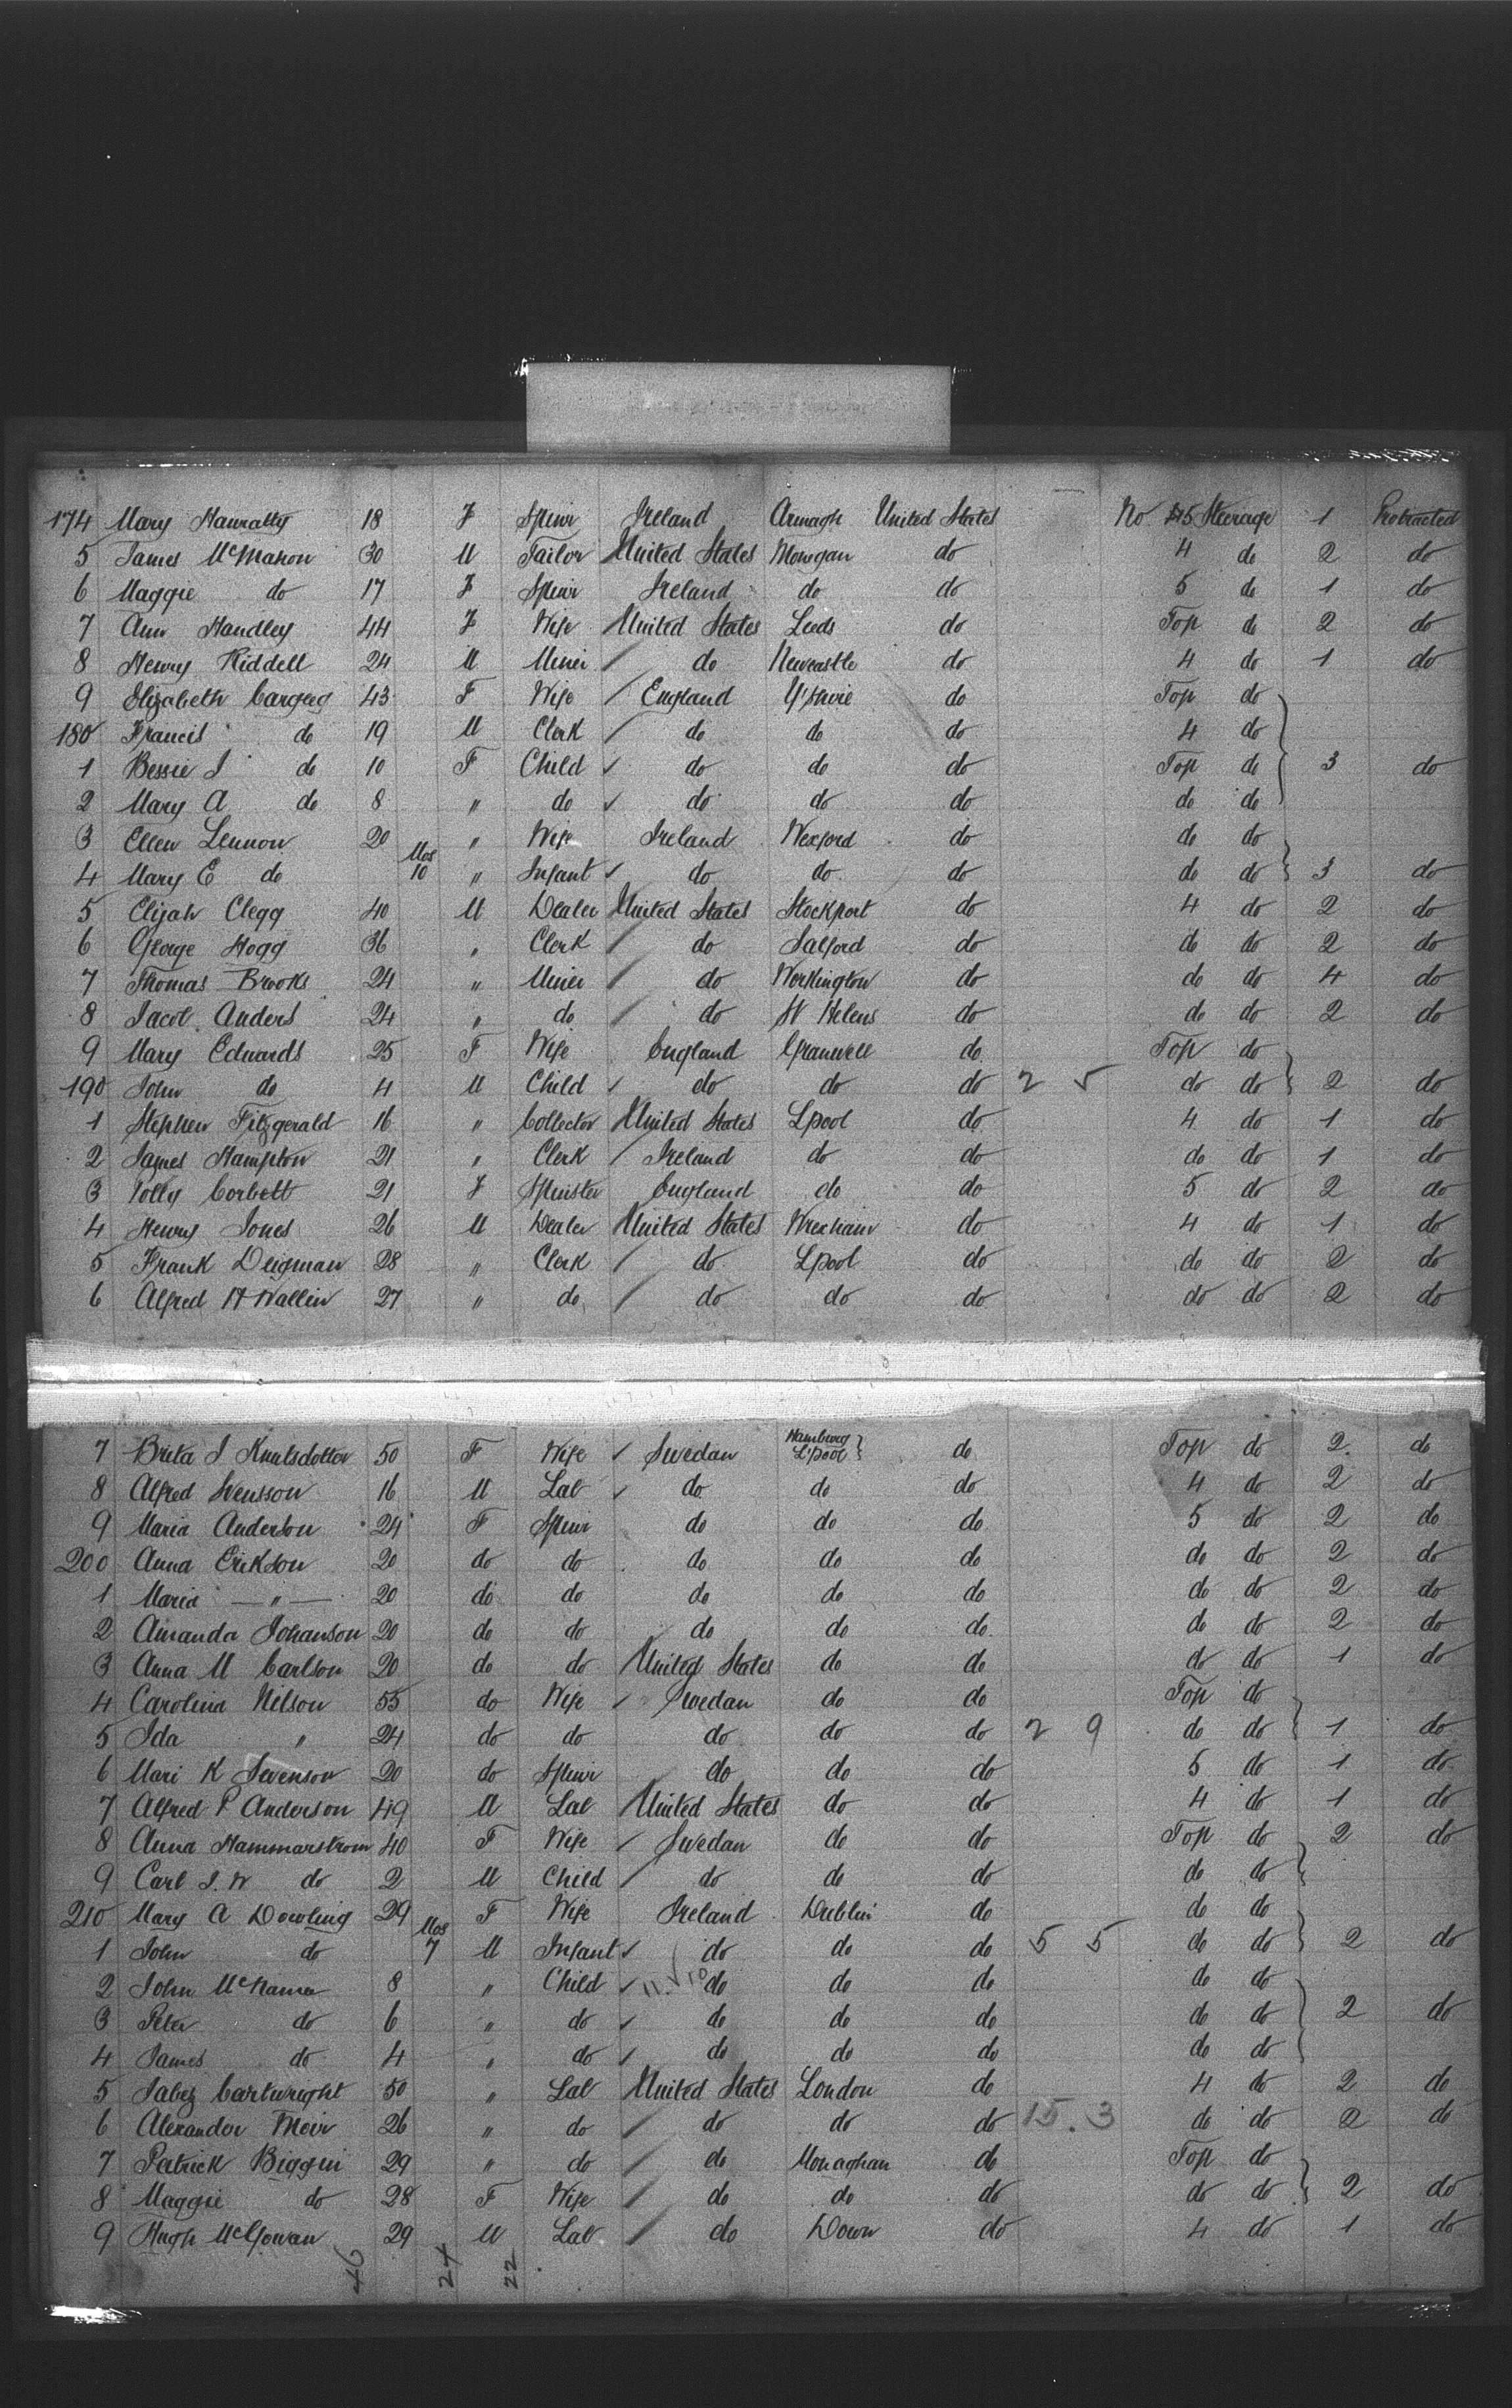 174 Mary Hanratty 18 F Spinr Ireland Armagh United States No 5 Steerage 1 Protracted
5 James McMahon 30 M Tailor United States Monagan do 4 do 2 do
6 Maggie do 17 F Spinr Ireland do do 5 do 1 do
7 Ann Handley 44 F Wife United States Leeds do Top do 2 do
8 Henry Riddell 24 M Miner do Newcastle do 4 do 1 do
9 Elizabeth Cargeeg 43 F Wife England Y'Shire do Top do
180 Francis do 19 M Clerk do do do 4 do
1 Bessie J do 10 F Child do do do Top do 3 do
2 Mary A do 8 " do do do do do do
3 Ellen Lennon 20 " Wife Ireland Wexford do do do
4 Mary E do Mos 10 " Infant do do do do do 3 do
5 Elijah Clegg 40 M Dealer United States Stockport do 4 do 2 do
6 George Hogg 36 " Clerk do Salford do do do 2 do
7 Thomas Brooks 24 " Miner do Workington do do do 4 do
8 Jacob Anders 24 " do do St Helens do do do 2 do
9 Mary Edwards 25 F Wife England do Top do
190 John do 4 M Child do do do 2 5 do do 2 do
1 Stephen Fitzgerald 16 " Collector United States Lpool do 4 do 1 do
2 James Hampton 21 " Clerk Ireland do do do do 1 do
3 Polly Corbett 21 F Spinster England do do 5 do 2 do
4 Henry Jones 26 M Dealer United States Wrexham do 4 do 1 do
5 Frank Deigman 28 " Clerk do Lpool do do do 2 do
6 Alfred H Wallin 27 " do do do do do do 2 do
7 Brita J Knutsdotter 50 F Wife Swedan Hamburg L'pool do Top do 2 do
8 Alfred Svensson 16 M Lab do do do 4 do 2 do
9 Maria Anderson 24 F Spinr do do do 5 do 2 do
200 Anna Erikson 20 do do do do do do do 2 do
1 Maria — " — 20 do do do do do do do 2 do
2 Amanda Johanson 20 do do do do do do do 2 do
3 Anna M Carlson 20 do do United States do do do do 1 do
4 Carolina Nilson 55 do Wife Swedan do do Top do
5 Ida " 24 do do do do do 2 9 do do 1 do
6 Mari K Svenson 20 do Spinr do do do 5 do 1 do
7 Alfred P Anderson 49 M Lab United States do do 4 do 1 do
8 Anna Hammarstrom 40 F Wife Swedan do do Top do 2 do
9 Carl J. W do 2 M Child do do do do do
210 Mary A Dowling 29 F Wife Ireland Dublin do do do
1 John do Mos 7 M Infant do do do 5 5 do do 2 do
2 John McNamee 8 " Child do do do do do
3 Peter do 6 " do do do do do do 2 do
4 James do 4 " do do do do do do
5 Jabez Cartwright 50 " Lab United States London do 4 do 2 do
6 Alexander Moir 26 " do do do do 15.3 do do 2 do
7 Patrick Biggin 29 " do do Monaghan do Top do
8 Maggie do 28 F Wife do do do do do 2 do
9 Hugh McGowan 29 M Lab do Down do 4 do 1 do
46 24 22